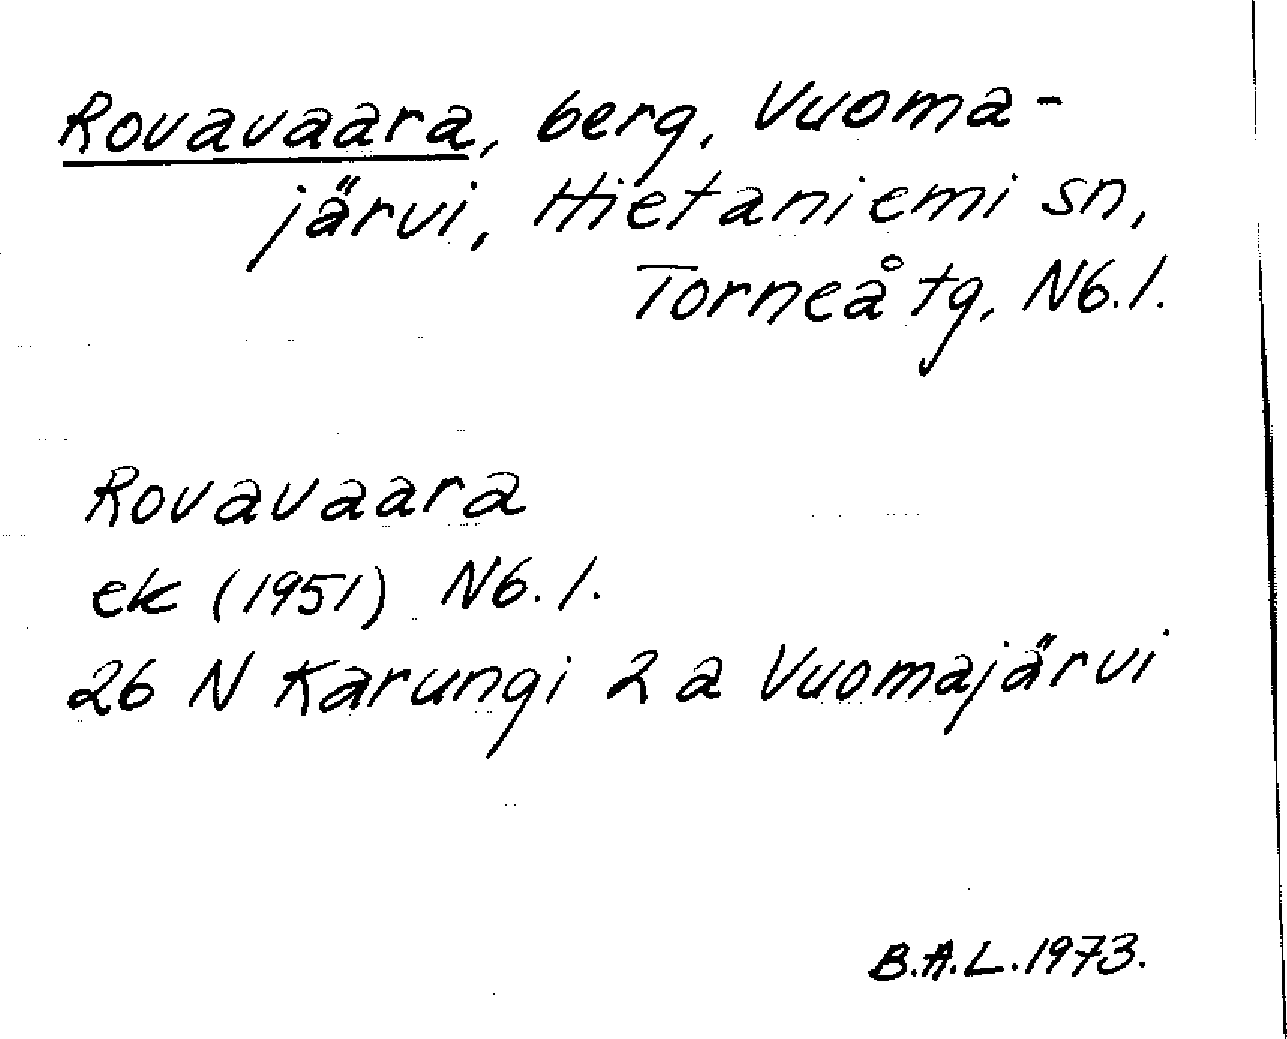 Rovavaara, berg, Vuoma-
järvi, Hietaniemi sn,
Torneå tg, N6.1.
Rovavaara
ek (1951) N6.1.
26 N Karungi 2 a Vuomajärvi
B.A.L. 1973.